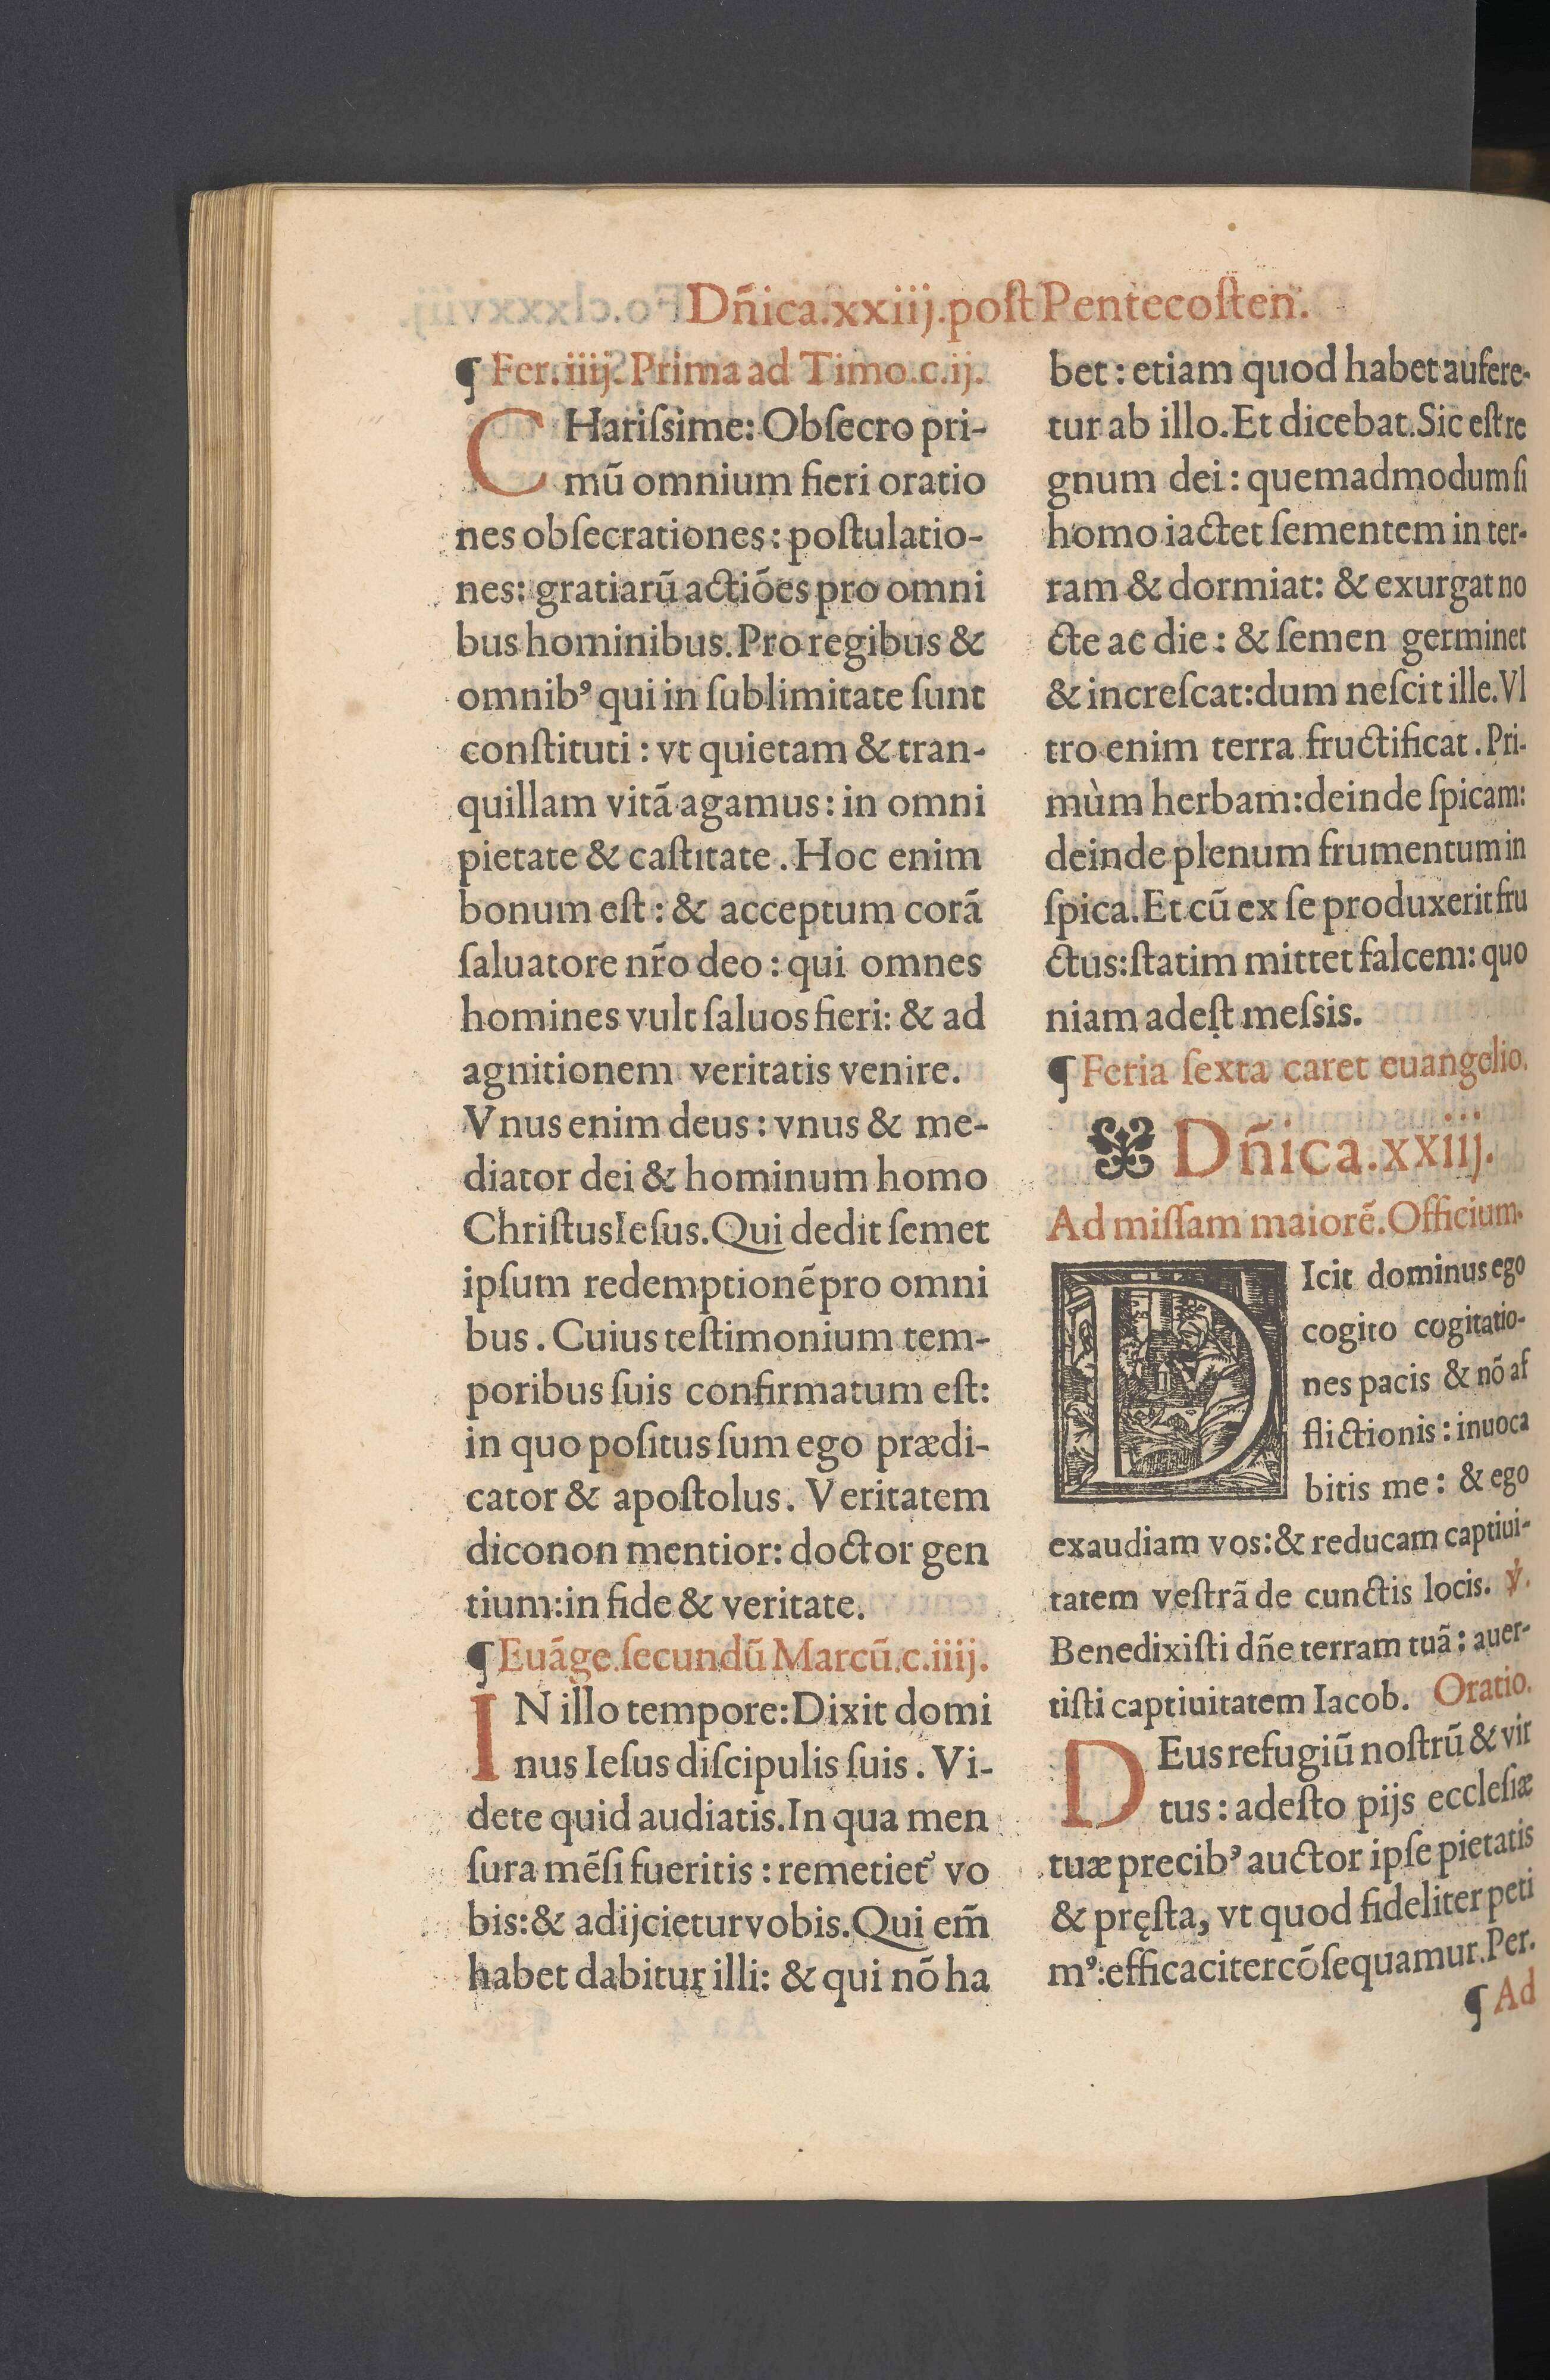 Dñica.xxiij.poſt Pentecoſten.
¶ Fer.iiij. Prima ad Timo.c.ij.
CHariſsime: Obſecro pri-
mũ omnium fieri oratio
nes obſecrationes: poſtulatio-
nes: gratiarũ actiões pro omni
bus hominibus. Pro regibus &
omnibꝰ qui in ſublimitate ſunt
conſtituti : vt quietam & tran-
quillam vitã agamus: in omni
pietate & caſtitate . Hoc enim
bonum eſt : & acceptum corã
ſaluatore nr̃o deo : qui omnes
homines vult ſaluos fieri: & ad
agnitionem veritatis venire.
Vnus enim deus : vnus & me-
diator dei & hominum homo
Chriſtus Ieſus. Qui dedit ſemet
ipſum redemptionẽ pro omni
bus . Cuius teſtimonium tem-
poribus ſuis confirmatum eſt:
in quo poſitus ſum ego prædi-
cator & apoſtolus. Veritatem
dico non mentior: doctor gen
tium: in fide & veritate.
¶ Euãge.ſecundũ Marcũ.c.iiij.
IN illo tempore: Dixit domi
nus Ieſus diſcipulis ſuis . Vi-
dete quid audiatis. In qua men
ſura mẽſi fueritis : remetiet᷑ vo
bis: & adijcietur vobis. Qui em̃
habet dabitur illi: & qui nõ ha
bet : etiam quod habet aufere-
tur ab illo. Et dicebat. Sic eſt re
gnum dei : quemadmodum ſi
homo iactet ſementem in ter-
ram & dormiat: & exurgat no
cte ac die : & ſemen germinet
& increſcat: dum neſcit ille. Vl
tro enim terra fructificat . Pri-
mùm herbam: deinde ſpicam:
deinde plenum frumentum in
ſpica. Et cũ ex ſe produxerit fru
ctus: ſtatim mittet falcem: quo
niam adeſt meſsis.
¶ Feria ſexta caret euangelio.
Dñica.xxiij.
Ad miſſam maiorẽ. Officium.
DIcit dominus ego
cogito cogitatio-
nes pacis & nõ af
flictionis : inuoca
bitis me : & ego
exaudiam vos: & reducam captiui-
tatem veſtrã de cunctis locis. ℣.
Benedixiſti dñe terram tuã : auer-
tiſti captiuitatem Iacob. Oratio.
DEus refugiũ noſtrũ & vir
tus : adeſto pijs eccleſiæ
tuæ precibꝰ auctor ipſe pietatis
& pręſta, vt quod fideliter peti
mꝰ: efficaciter cõſequamur. Per.
¶ Ad